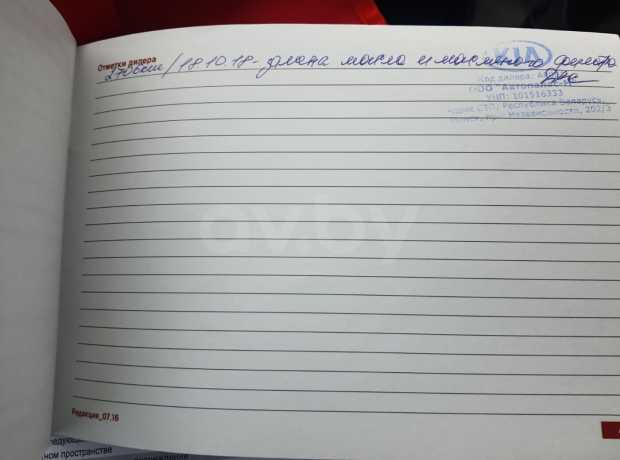 Отметки дилера
2706км/18.10.18-замена масла и масляного фильтра
KIA
Код дилера:
ООО "Автопалас-М"
УНП: 101516333
Адрес СТО: Республика Беларусь,
Минск, пр. Независимости, 202/3
av.by
Редакция_07.16
ном пространстве